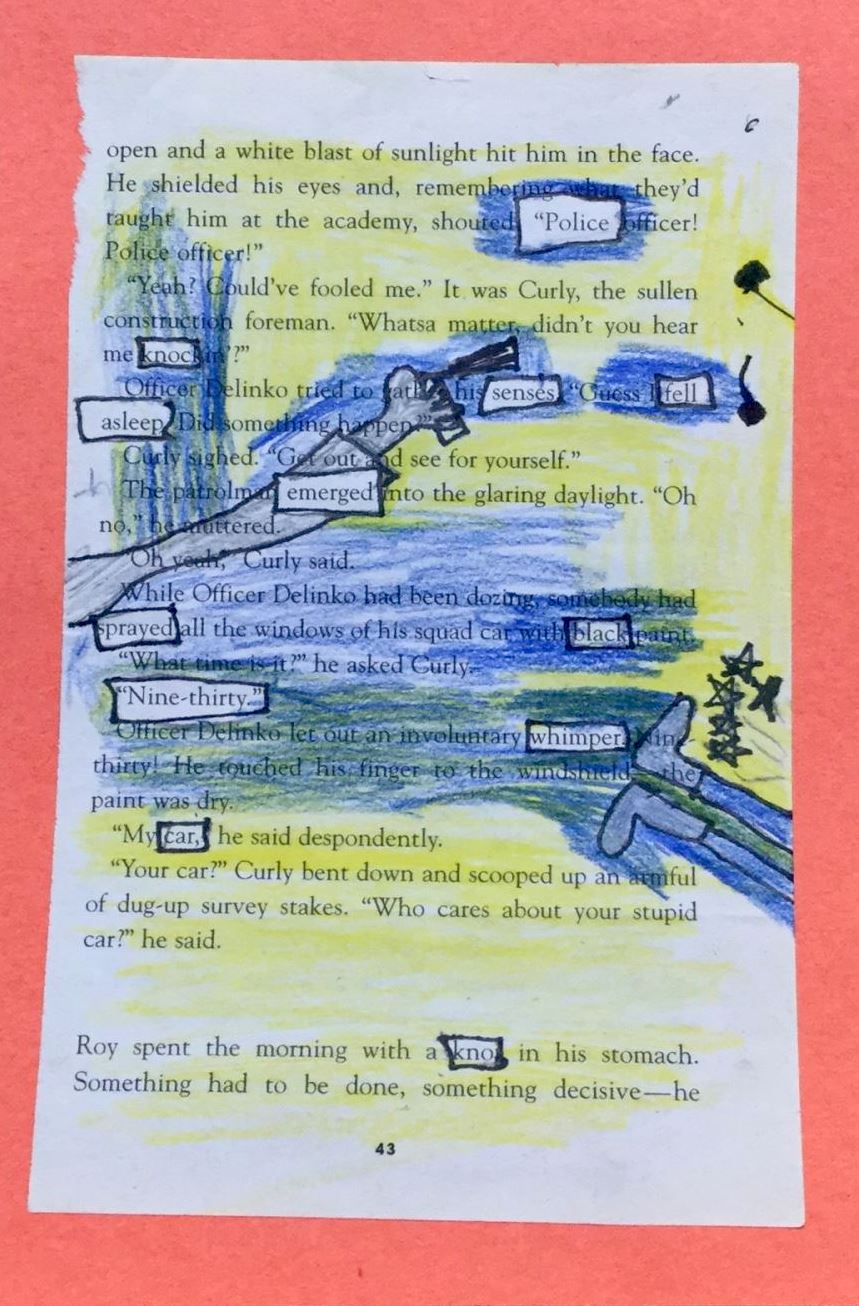 open and a white blast of sunlight hit him in the face.
He shielded his eyes and, remembering what they'd
taught him at the academy, shouted "Police officer!
Police officer!"
"Yeah? Could've fooled me." It was Curly, the sullen
construction foreman. "Whatsa matter, didn't you hear
me knockin'?"
Officer Delinko tried to gather his senses. "Guess I fell
asleep. Did something happen?"
Curly sighed. "Get out and see for yourself."
The patrolman emerged into the glaring daylight. "Oh
no," he muttered.
"Oh yeah," Curly said.
While Officer Delinko had been dozing, somebody had
sprayed all the windows of his squad car with black paint.
"What time is it?" he asked Curly.
"Nine-thirty."
Officer Delinko let out an involuntary whimper. Nine-
thirty! He touched his finger to the windshield—the
paint was dry.
"My car," he said despondently.
"Your car?" Curly bent down and scooped up an armful
of dug-up survey stakes. "Who cares about your stupid
car?" he said.
Roy spent the morning with a knot in his stomach.
Something had to be done, something decisive—he
43